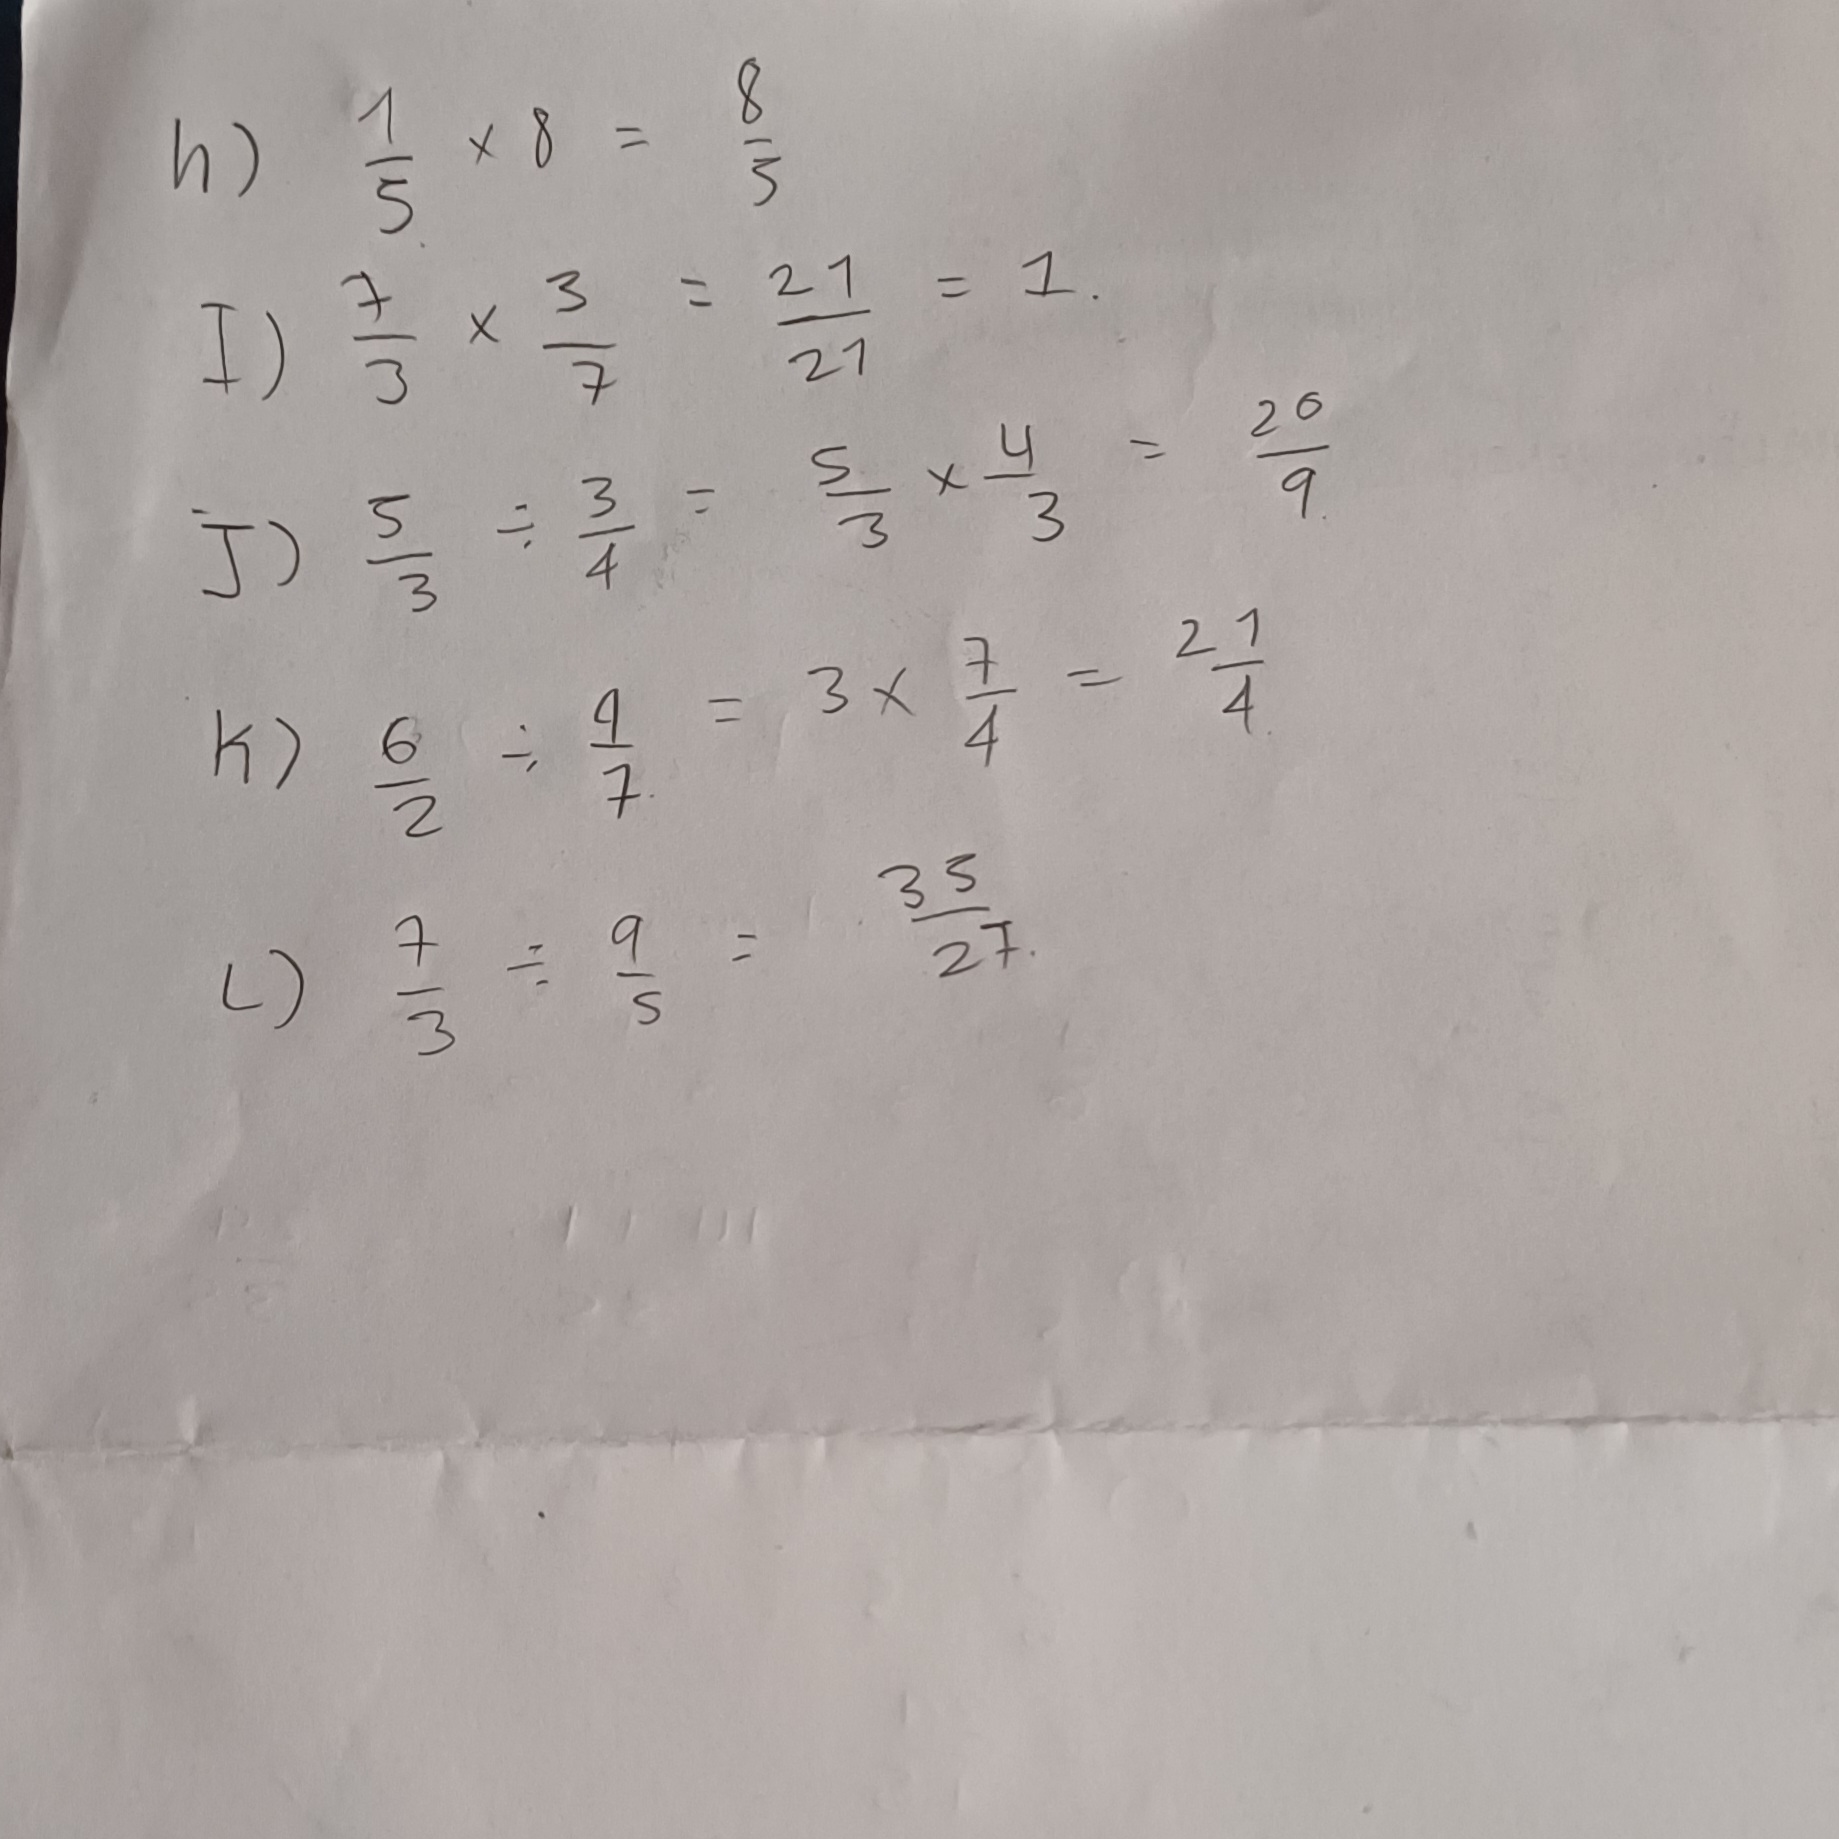 h) 1/5 × 8 = 8/5
I) 7/3 × 3/7 = 21/21 = 1.
J) 5/3 ÷ 3/4 = 5/3 × 4/3 = 20/9.
K) 6/2 ÷ 4/7. = 3 × 7/4 = 21/4.
L) 7/3 ÷ 9/5 = 35/27.